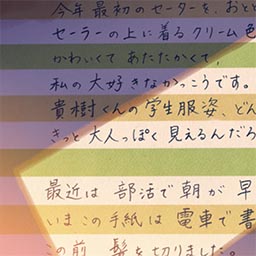 今年最初のセーターを、おとと
セーラーの上に着るクリーム色
かわいくてあたたかくて、
私の大好きなかっこうです。
貴樹くんの学生服姿、どん
きっと大人っぽく見えるんだろ
最近は部活で朝が早
いまこの手紙は電車で書
この前、髪を切りました。